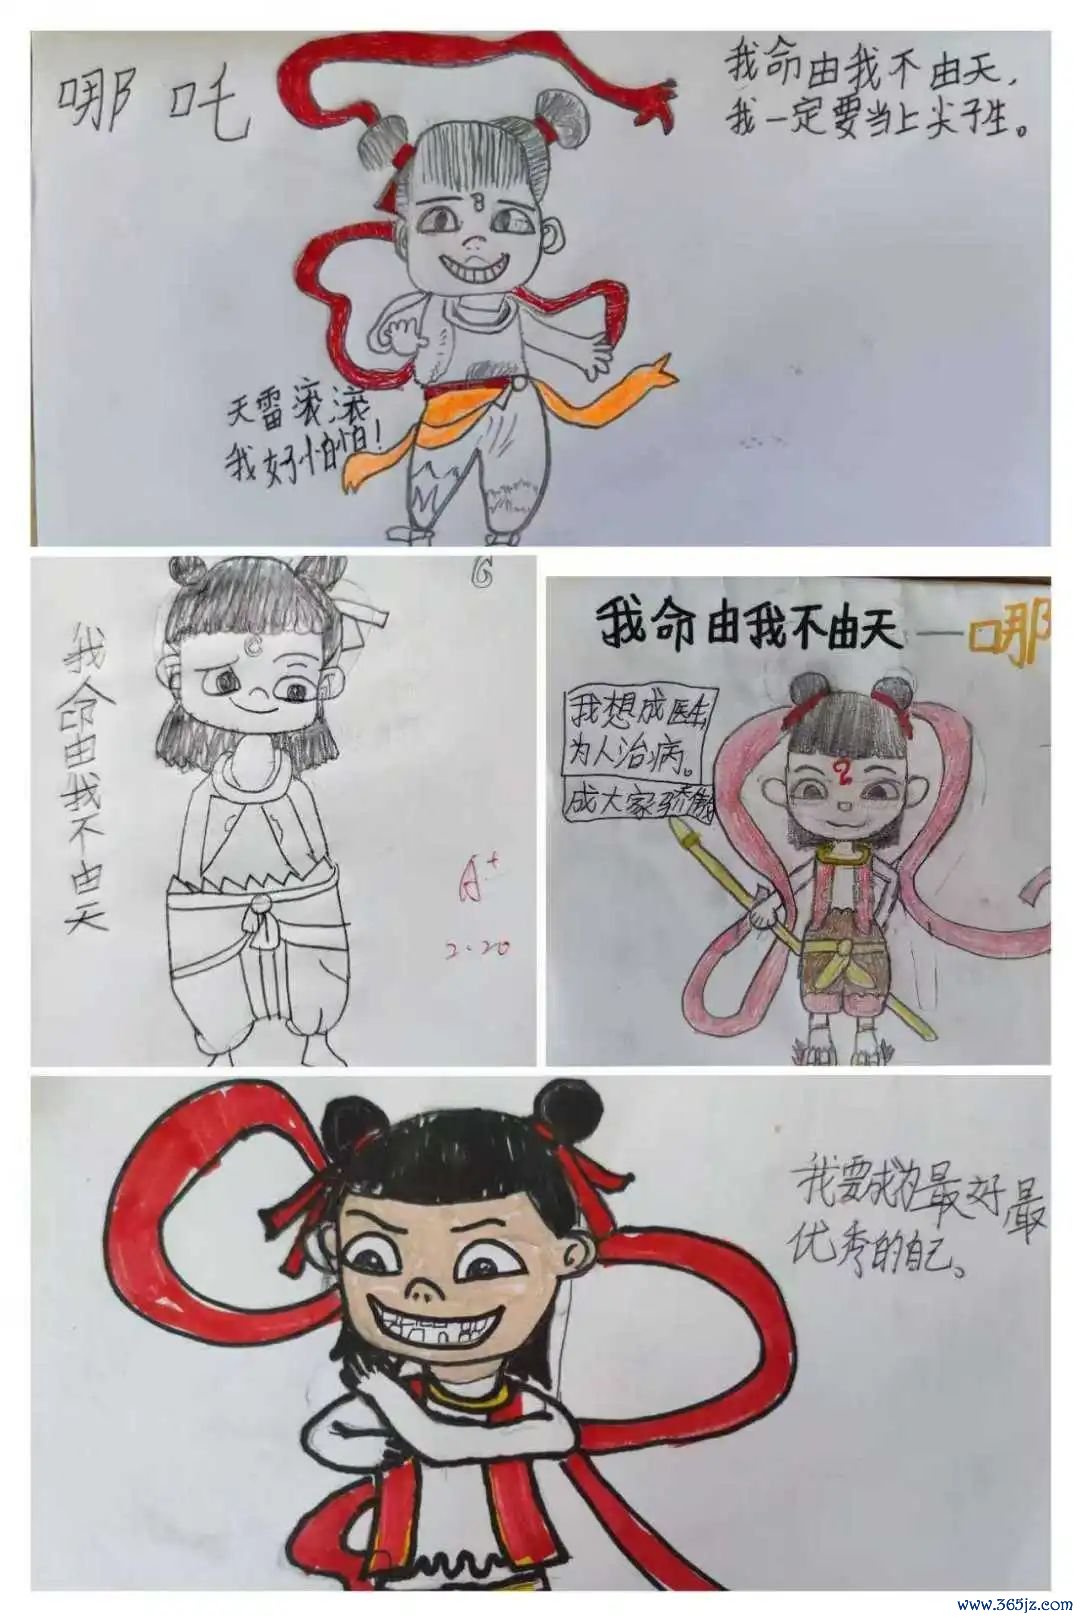 哪吒
我命由我不由天，
我一定要当上尖子生。
天雷滚滚
我好怕怕！
我命由我不由天
G
A+
2.20
我命由我不由天——哪
我想成医生
为人治病。
成大家骄傲
我要成为最好最
优秀的自己。
www.365jz.com